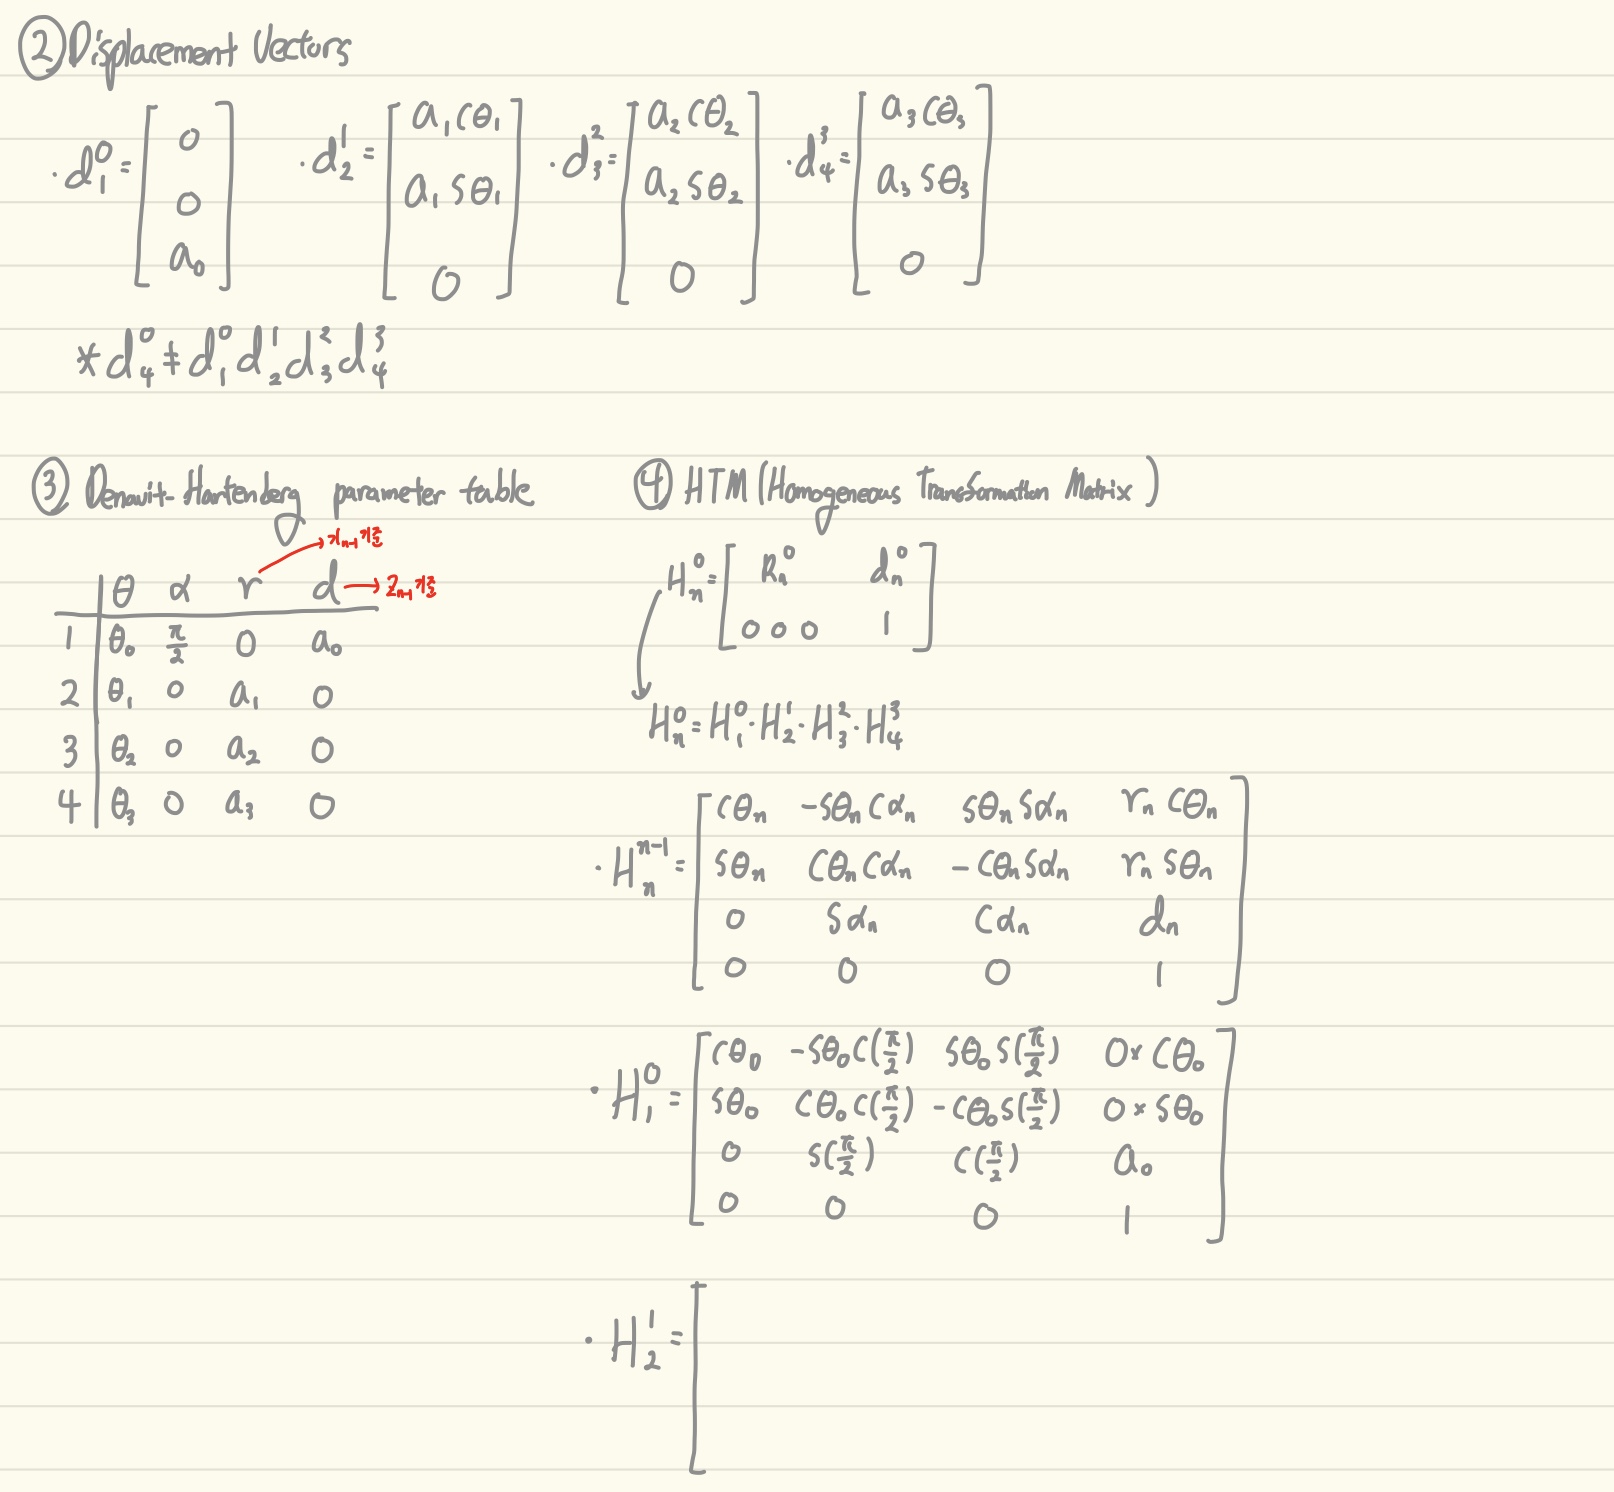 ② Displacement Vectors
· d₁⁰ = [ 0 ; 0 ; a₀ ] · d₂¹ = [ a₁cθ₁ ; a₁sθ₁ ; 0 ] · d₃² = [ a₂cθ₂ ; a₂sθ₂ ; 0 ] · d₄³ = [ a₃cθ₃ ; a₃sθ₃ ; 0 ]
* d₄⁰ ≠ d₁⁰ d₂¹ d₃² d₄³
③ Denavit-Hartenberg parameter table
xₙ₋₁기준
θ α r d → Zₙ₋₁기준
1 θ₀ π/2 0 a₀
2 θ₁ 0 a₁ 0
3 θ₂ 0 a₂ 0
4 θ₃ 0 a₃ 0
④ HTM (Homogeneous Transformation Matrix)
Hₙ⁰ = [ Rₙ⁰ dₙ⁰
0 0 0 1 ]
Hₙ⁰ = H₁⁰ · H₂¹ · H₃² · H₄³
· Hₙⁿ⁻¹ = [ cθₙ -sθₙcαₙ sθₙsαₙ rₙcθₙ
sθₙ cθₙcαₙ -cθₙsαₙ rₙsθₙ
0 sαₙ cαₙ dₙ
0 0 0 1 ]
· H₁⁰ = [ cθ₀ -sθ₀c(π/2) sθ₀s(π/2) 0×cθ₀
sθ₀ cθ₀c(π/2) -cθ₀s(π/2) 0×sθ₀
0 s(π/2) c(π/2) a₀
0 0 0 1 ]
· H₂¹ = [